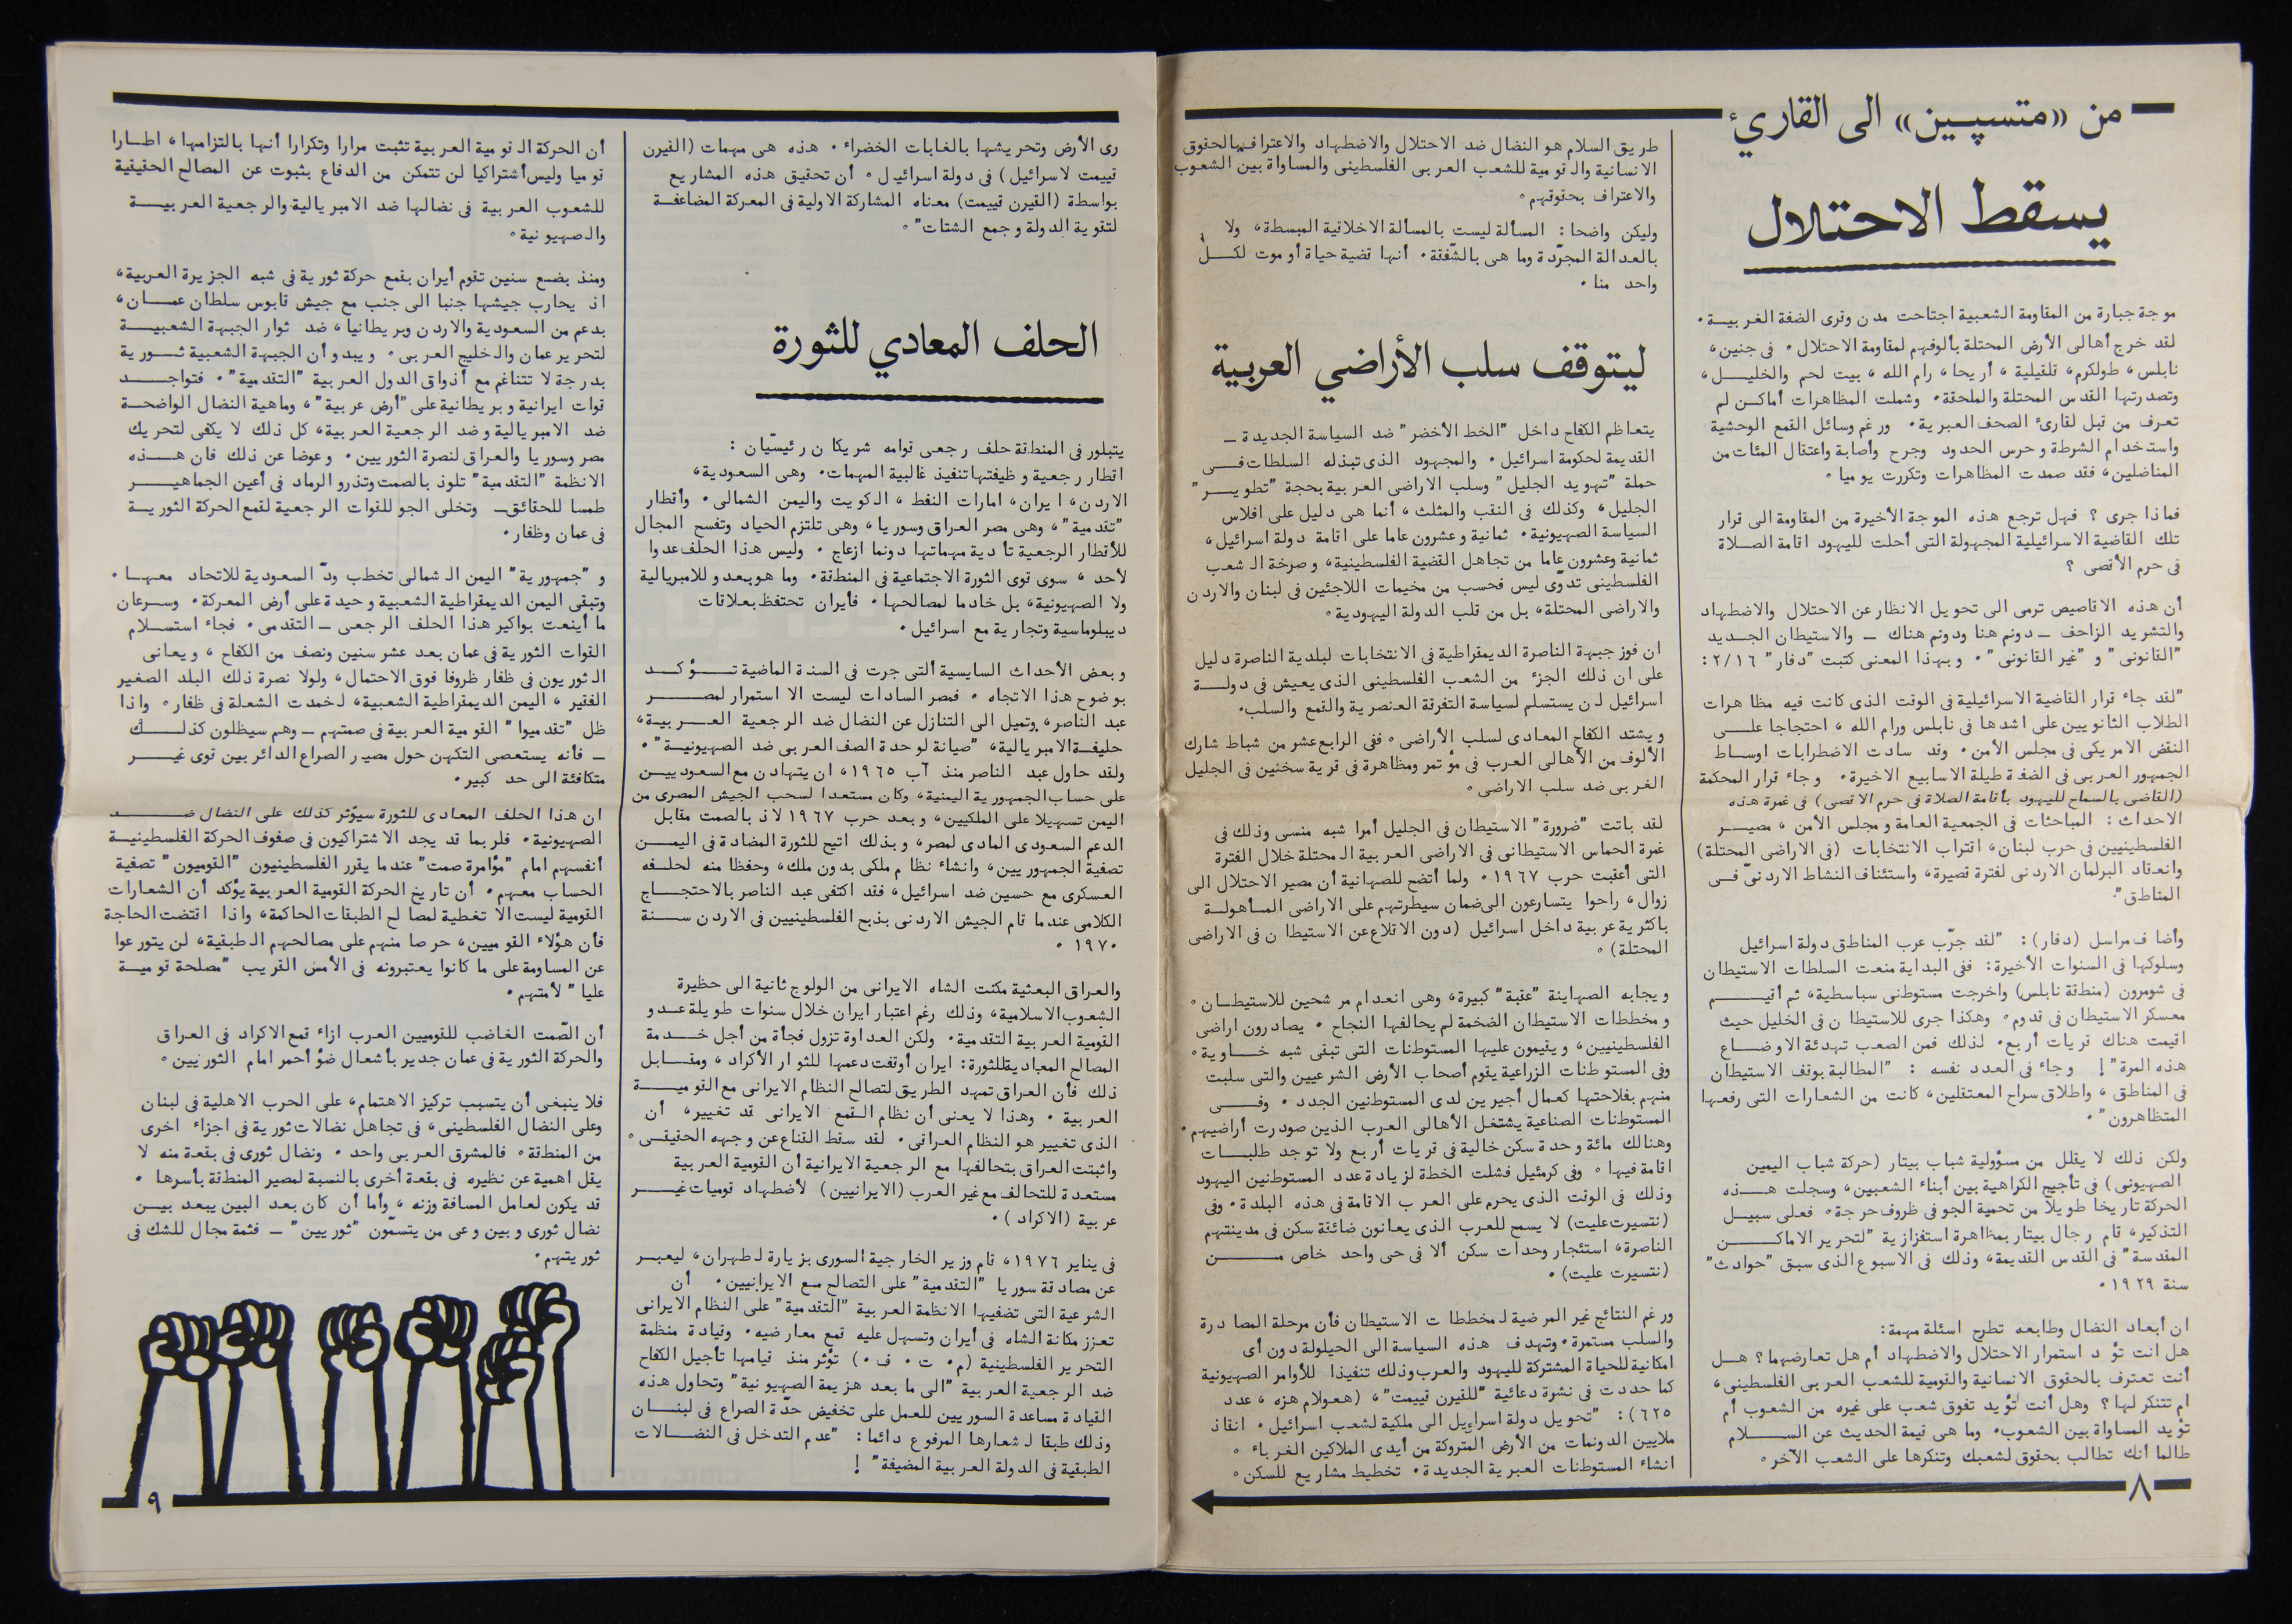 من «متسپين» الى القاريء
يسقط الاحتلال
موجة جبارة من المقاومة الشعبية اجتاحت مدن وقرى الضفة الغربية.
لقد خرج أهالى الأرض المحتلة بألوفهم لمقاومة الاحتلال. فى جنين،
نابلس، طولكرم، قلقيلية، أريحا، رام الله، بيت لحم والخليل،
وتصدرتها القدس المحتلة والملحقة. وشملت المظاهرات أماكن لم
تعرف من قبل لقارئ الصحف العبرية. ورغم وسائل القمع الوحشية
واستخدام الشرطة وحرس الحدود وجرح وأصابة واعتقال المئات من
المناضلين، فقد صمدت المظاهرات وتكررت يوميا.
فماذا جرى؟ فهل ترجع هذه الموجة الأخيرة من المقاومة الى قرار
تلك القاضية الاسرائيلية المجهولة التى أحلت لليهود اقامة الصلاة
فى حرم الأقصى؟
أن هذه الاقاصيص ترمى الى تحويل الانظار عن الاحتلال والاضطهاد
والتشريد الزاحف ــ دونم هنا ودونم هناك ــ والاستيطان الجديد
"القانونى" و "غير القانونى". وبهذا المعنى كتبت "دفار" ٢/١٦:
"لقد جاء قرار القاضية الاسرائيلية فى الوقت الذى كانت فيه مظاهرات
الطلاب الثانويين على اشدها فى نابلس ورام الله، احتجاجا على
النقض الامريكى فى مجلس الأمن. وقد سادت الاضطرابات اوساط
الجمهور العربى فى الضفة طيلة الاسابيع الاخيرة. وجاء قرار المحكمة
(القاضى بالسماح لليهود بأقامة الصلاة فى حرم الاقصى) فى غمرة هذه
الاحداث: المباحثات فى الجمعية العامة ومجلس الأمن، مصير
الفلسطينيين فى حرب لبنان، اقتراب الانتخابات (فى الاراضى المحتلة)
وانعقاد البرلمان الاردنى لفترة قصيرة، واستئناف النشاط الاردنىّ فى
المناطق".
وأضاف مراسل (دفار): "لقد جرّب عرب المناطق دولة اسرائيل
وسلوكها فى السنوات الأخيرة: ففى البداية منعت السلطات الاستيطان
فى شومرون (منطقة نابلس) واخرجت مستوطنى سباسطية، ثم أقيم
معسكر الاستيطان فى قدوم. وهكذا جرى للاستيطان فى الخليل حيث
اقيمت هناك قريات أربع. لذلك فمن الصعب تهدئة الاوضاع
هذه المرة"! وجاء فى العدد نفسه: "المطالبة بوقف الاستيطان
فى المناطق، واطلاق سراح المعتقلين، كانت من الشعارات التى رفعها
المتظاهرون".
ولكن ذلك لا يقلل من مسؤولية شباب بيتار (حركة شباب اليمين
الصهيونى) فى تأجيج الكراهية بين أبناء الشعبين، وسجلت هذه
الحركة تاريخا طويلا من تحمية الجو فى ظروف حرجة. فعلى سبيل
التذكير، قام رجال بيتار بمظاهرة استفزازية "لتحرير الاماكن
المقدسة" فى القدس القديمة، وذلك فى الاسبوع الذى سبق "حوادث"
سنة ١٩٢٩.
ان أبعاد النضال وطابعه تطرح اسئلة مهمة:
هل انت تؤيد استمرار الاحتلال والاضطهاد أم هل تعارضهما؟ هل
أنت تعترف بالحقوق الانسانية والقومية للشعب العربى الفلسطينى،
ام تتنكر لها؟ وهل أنت تؤيد تفوق شعب على غيره من الشعوب أم
تؤيد المساواة بين الشعوب. وما هى قيمة الحديث عن السلام
طالما أنك تطالب بحقوق لشعبك وتنكرها على الشعب الآخر.
٨
طريق السلام هو النضال ضد الاحتلال والاضطهاد والاعتراف بالحقوق
الانسانية والقومية للشعب العربى الفلسطينى والمساواة بين الشعوب
والاعتراف بحقوقهم.
وليكن واضحا: المسألة ليست بالمسألة الاخلاقية المبسطة، ولا
بالعدالة المجرّدة وما هى بالشّفقة. أنها قضية حياة أو موت لكلّ
واحد منا.
ليتوقف سلب الأراضي العربية
يتعاظم الكفاح داخل "الخط الأخضر" ضد السياسة الجديدة ــ
القديمة لحكومة اسرائيل. والمجهود الذى تبذله السلطات فى
حملة "تهويد الجليل" وسلب الاراضى العربية بحجة "تطوير"
الجليل، وكذلك فى النقب والمثلث، أنما هى دليل على افلاس
السياسة الصهيونية. ثمانية وعشرون عاما على اقامة دولة اسرائيل،
ثمانية وعشرون عاما من تجاهل القضية الفلسطينية، وصرخة الشعب
الفلسطينى تدوّى ليس فحسب من مخيمات اللاجئين فى لبنان والاردن
والاراضى المحتلة، بل من قلب الدولة اليهودية.
ان فوز جبهة الناصرة الديمقراطية فى الانتخابات لبلدية الناصرة دليل
على ان ذلك الجزء من الشعب الفلسطينى الذى يعيش فى دولة
اسرائيل لن يستسلم لسياسة التفرقة العنصرية والقمع والسلب.
ويشتد الكفاح المعادى لسلب الأراضى. ففى الرابع عشر من شباط شارك
الألوف من الأهالى العرب فى مؤتمر ومظاهرة فى قرية سخنين فى الجليل
الغربى ضد سلب الاراضى.
لقد باتت "ضرورة" الاستيطان فى الجليل أمرا شبه منسى وذلك فى
غمرة الحماس الاستيطانى فى الاراضى العربية المحتلة خلال الفترة
التى أعقبت حرب ١٩٦٧. ولما أتضح للصهاينة أن مصير الاحتلال الى
زوال، راحوا يتسارعون الى ضمان سيطرتهم على الاراضى المأهولة
باكثرية عربية داخل اسرائيل (دون الاقلاع عن الاستيطان فى الاراضى
المحتلة).
ويجابه الصهاينة "عقبة" كبيرة، وهى انعدام مرشحين للاستيطان.
ومخططات الاستيطان الضخمة لم يحالفها النجاح. يصادرون اراضى
الفلسطينيين، ويقيمون عليها المستوطنات التى تبقى شبه خاوية.
وفى المستوطنات الزراعية يقوم أصحاب الأرض الشرعيين والتى سلبت
منهم بفلاحتها كعمال أجيرين لدى المستوطنين الجدد. وفى
المستوطنات الصناعية يشتغل الأهالى العرب الذين صودرت أراضيهم.
وهنالك مائة وحدة سكن خالية فى قريات أربع ولا توجد طلبات
اقامة فيها. وفى كرمئيل فشلت الخطة لزيادة عدد المستوطنين اليهود
وذلك فى الوقت الذى يحرم على العرب الاقامة فى هذه البلدة. وفى
(نتسيرت عليت) لا يسمح للعرب الذى يعانون ضائقة سكن فى مدينتهم
الناصرة، استئجار وحدات سكن ألا فى حى واحد خاص من
(نتسيرت عليت).
ورغم النتائج غير المرضية لمخططات الاستيطان فأن مرحلة المصادرة
والسلب مستمرة. وتهدف هذه السياسة الى الحيلولة دون أى
امكانية للحياة المشتركة لليهود والعرب وذلك تنفيذا للأوامر الصهيونية
كما حددت فى نشرة دعائية "للقيرن قييمت"، (هعولام هزه، عدد
٦٢٥): "تحويل دولة اسرائيل الى ملكية لشعب اسرائيل. انقاذ
ملايين الدونمات من الأرض المتروكة من أيدى الملاكين الغرباء.
انشاء المستوطنات العبرية الجديدة. تخطيط مشاريع للسكن.
رى الأرض وتحريشها بالغابات الخضراء. هذه هى مهمات (القيرن
قييمت لاسرائيل) فى دولة اسرائيل. أن تحقيق هذه المشاريع
بواسطة (القيرن قييمت) معناه المشاركة الاولية فى المعركة المضاعفة
لتقوية الدولة وجمع الشتات".
الحلف المعادي للثورة
يتبلور فى المنطقة حلف رجعى قوامه شريكان رئيسّيان:
اقطار رجعية وظيفتها تنفيذ غالبية المهمات. وهى السعودية،
الاردن، ايران، امارات النفط، الكويت واليمن الشمالى. وأقطار
"تقدمية"، وهى مصر العراق وسوريا، وهى تلتزم الحياد وتفسح المجال
للأقطار الرجعية تأدية مهماتها دونما ازعاج. وليس هذا الحلف عدوا
لأحد، سوى قوى الثورة الاجتماعية فى المنطقة. وما هو بعدو للامبريالية
ولا الصهيونية، بل خادما لمصالحها. فأيران تحتفظ بعلاقات
ديبلوماسية وتجارية مع اسرائيل.
وبعض الأحداث السايسية ألتى جرت فى السنة الماضية تؤكد
بوضوح هذا الاتجاه. فمصر السادات ليست الا استمرار لمصر
عبد الناصر، وتميل الى التنازل عن النضال ضد الرجعية العربية،
حليفة الامبريالية، "صيانة لوحدة الصف العربى ضد الصهيونية".
ولقد حاول عبد الناصر منذ آب ١٩٦٥، ان يتهادن مع السعوديين
على حساب الجمهورية اليمنية، وكان مستعدا لسحب الجيش المصرى من
اليمن تسهيلا على الملكيين، وبعد حرب ١٩٦٧ لاذ بالصمت مقابل
الدعم السعودى المادى لمصر، وبذلك اتيح للثورة المضادة فى اليمن
تصفية الجمهوريين، وانشاء نظام ملكى بدون ملك، وحفظا منه لحلفه
العسكرى مع حسين ضد اسرائيل، فقد اكتفى عبد الناصر بالاحتجاج
الكلامى عندما قام الجيش الاردنى بذبح الفلسطينيين فى الاردن سنة
١٩٧٠.
والعراق البعثية مكنت الشاه الايرانى من الولوج ثانية الى حظيرة
الشعوب الاسلامية، وذلك رغم اعتبار ايران خلال سنوات طويلة عدو
القومية العربية التقدمية. ولكن العداوة تزول فجأة من أجل خدمة
المصالح المعادية للثورة: ايران أوقفت دعمها للثوار الأكراد، ومقابل
ذلك فأن العراق تمهد الطريق لتصالح النظام الايرانى مع القومية
العربية. وهذا لا يعنى أن نظام القمع الايرانى قد تغيير، أن
الذى تغيير هو النظام العراقى. لقد سقط القناع عن وجهه الحقيقى.
واثبتت العراق بتحالفها مع الرجعية الايرانية أن القومية العربية
مستعدة للتحالف مع غير العرب (الايرانيين) لأضطهاد قوميات غير
عربية (الاكراد).
فى يناير ١٩٧٦، قام وزير الخارجية السورى بزيارة لطهران، ليعبر
عن مصادقة سوريا "التقدمية" على التصالح مع الايرانيين. أن
الشرعية التى تضفيها الانظمة العربية "التقدمية" على النظام الايرانى
تعزز مكانة الشاه فى أيران وتسهل عليه قمع معارضيه. وقيادة منظمة
التحرير الفلسطينية (م. ت. ف.) تؤثر منذ قيامها تأجيل الكفاح
ضد الرجعية العربية "الى ما بعد هزيمة الصّهيونية" وتحاول هذه
القيادة مساعدة السوريين للعمل على تخفيض حدّة الصراع فى لبنان
وذلك طبقا لشعارها المرفوع دائما: "عدم التدخل فى النضالات
الطبقية فى الدولة العربية المضيفة"!
أن الحركة القومية العربية تثبت مرارا وتكرارا أنها بالتزامها، اطارا
قوميا وليس أشتراكيا لن تتمكن من الدفاع بثبوت عن المصالح الحقيقية
للشعوب العربية فى نضالها ضد الامبريالية والرجعية العربية
والصهيونية.
ومنذ بضع سنين تقوم أيران بقمع حركة ثورية فى شبه الجزيرة العربية،
اذ يحارب جيشها جنبا الى جنب مع جيش قابوس سلطان عمان،
بدعم من السعودية والاردن وبريطانيا، ضد ثوار الجبهة الشعبية
لتحرير عمان والخليج العربى. ويبدو أن الجبهة الشعبية ثورية
بدرجة لا تتناغم مع أذواق الدول العربية "التقدمية". فتواجد
قوات ايرانية وبريطانية على "أرض عربية"، وماهية النضال الواضحة
ضد الامبريالية وضد الرجعية العربية، كل ذلك لا يكفى لتحريك
مصر وسوريا والعراق لنصرة الثوريين. وعوضا عن ذلك فان هذه
الانظمة "التقدمية" تلوذ بالصمت وتذرو الرماد فى أعين الجماهير
طمسا للحقائق ــ وتخلى الجو للقوات الرجعية لقمع الحركة الثورية
فى عمان وظفار.
و "جمهورية" اليمن الشمالى تخطب ودّ السعودية للاتحاد معها.
وتبقى اليمن الديمقراطية الشعبية وحيدة على أرض المعركة. وسرعان
ما أينعت بواكير هذا الحلف الرجعى ــ التقدمى. فجاء استسلام
القوات الثورية فى عمان بعد عشر سنين ونصف من الكفاح، ويعانى
الثوريون فى ظفار ظروفا فوق الاحتمال، ولولا نصرة ذلك البلد الصغير
الفقير، اليمن الديمقراطية الشعبية، لخمدت الشعلة فى ظفار. واذا
ظل "تقدميوا" القومية العربية فى صمتهم ــ وهم سيظلون كذلك
ــ فأنه يستعصى التكهن حول مصير الصراع الدائر بين قوى غير
متكافئة الى حد كبير.
ان هذا الحلف المعادى للثورة سيؤثر كذلك على النضال ضد
الصهيونية. فلربما قد يجد الاشتراكيون فى صفوف الحركة الفلسطينية
أنفسهم امام "مؤامرة صمت" عندما يقرر الفلسطينيون "القوميون" تصفية
الحساب معهم. أن تاريخ الحركة القومية العربية يؤكد أن الشعارات
القومية ليست الا تغطية لمصالح الطبقات الحاكمة، واذا اقتضت الحاجة
فأن هؤلاء القوميين، حرصا منهم على مصالحهم الطبقية، لن يتورعوا
عن المساومة على ما كانوا يعتبرونه فى الأمس القريب "مصلحة قومية
عليا" لأمتهم.
أن الصّمت الغاضب للقوميين العرب ازاء قمع الاكراد فى العراق
والحركة الثورية فى عمان جدير بأشعال ضؤ أحمر امام الثوريين.
فلا ينبغى أن يتسبب تركيز الاهتمام، على الحرب الاهلية فى لبنان
وعلى النضال الفلسطينى، فى تجاهل نضالات ثورية فى اجزاء اخرى
من المنطقة. فالمشرق العربى واحد. ونضال ثورى فى بقعة منه لا
يقل اهمية عن نظيره فى بقعة أخرى بالنسبة لمصير المنطقة بأسرها.
قد يكون لعامل المسافة وزنه، وأما أن كان بعد البين يبعد بين
نضال ثورى وبين وعى من يتسمّون "ثوريين" ــ فثمة مجال للشك فى
ثوريتهم.
٩